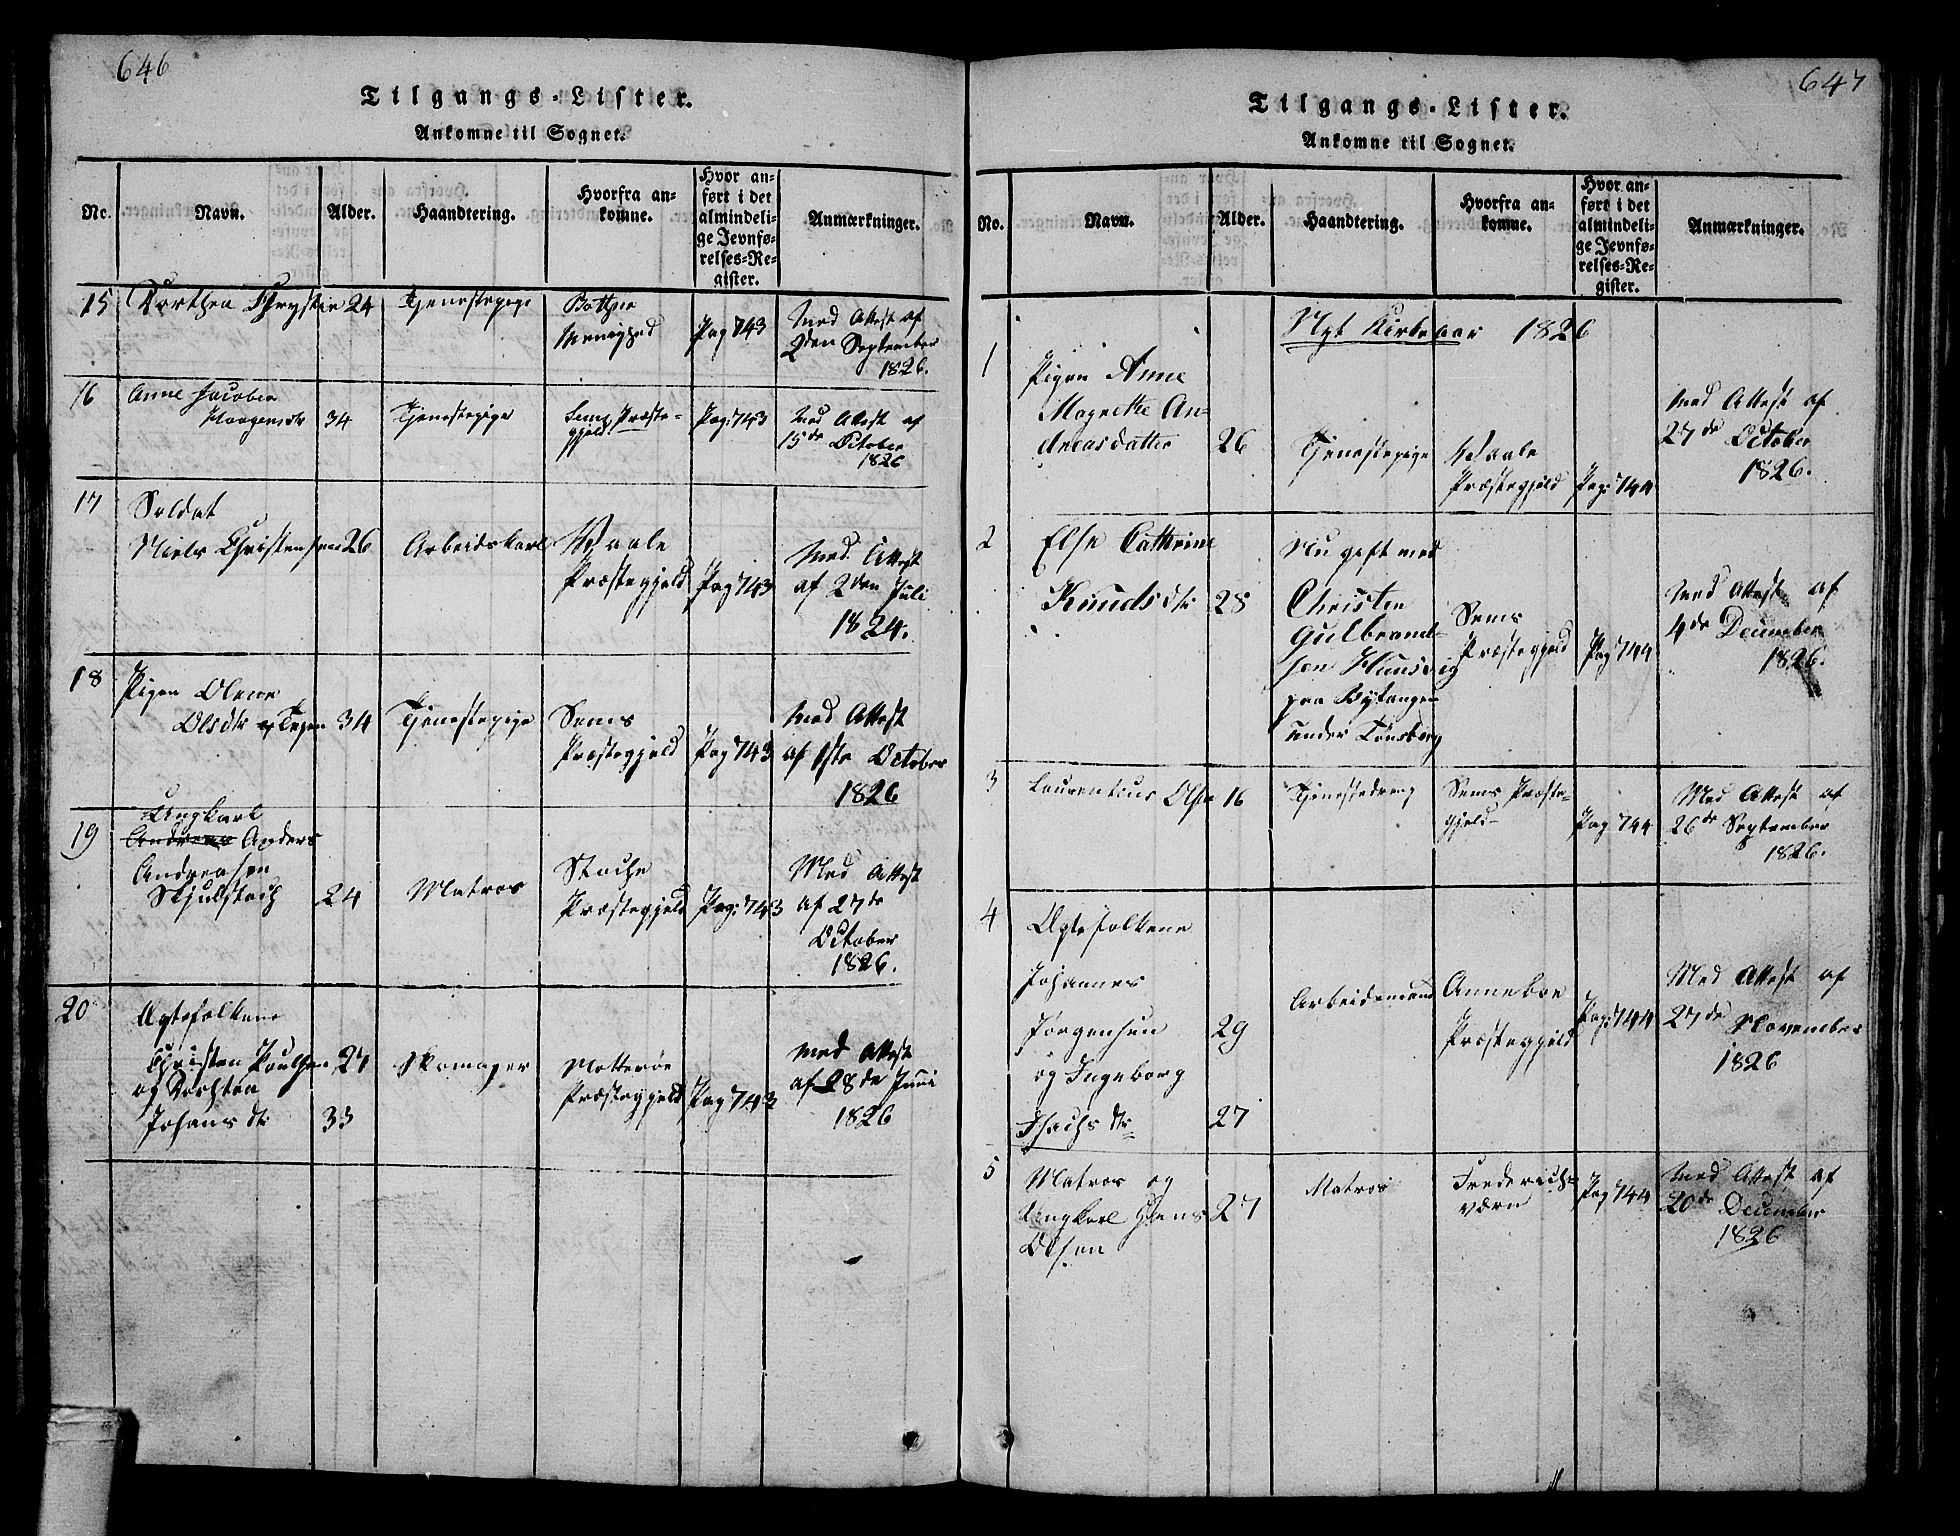 646
Tilgangs-Lister.
Ankomne til Sognet.
No. Navn. Alder. Haandtering. Hvorfra an-
komne. Hvor an-
ført i det
almindeli-
ge Jevnfø-
relses-Re-
gister. Anmærkninger.
15 Dorthea Chrystie 24 Tjenestepige
Menighed Pag 743 Med Attest af
2den September
1826.
16 Anne Jacobea
34 Tjenestepige Sems Præste-
gjeld Pag: 743 Med Attest af
15de October
1826
17 Soldat
Niels Christensen 26 Arbeidskarl Waale
Præstegjeld Pag 743 Med Attest
af 2den Juli
1824.
18 Pigen Olene
Olsdtr 34 Tjenestepige Sems
Præstegjeld Pag 743 Med Attest
af 1ste October
1826
19 Ungkarl
Andreas Anders
Andreasen
24 Matros Stoche
Præstegjeld Pag: 743 Med Attest
af 27de
October
1826.
20 Ægtefolkene
Christen Poulsen 27 Skomager Notterøe
og Dorthea Præstegjeld Pag 743
Johans dtr 33
Med Attest
af 28de Juni
1826
647
Tilgangs-Lister.
Ankomne til Sognet.
No. Navn. Alder. Haandtering. Hvorfra an-
komne. Hvor an-
ført i det
almindeli-
ge Jevnfø-
relses-Re-
gister. Anmærkninger.
Nyt Kirkeaar 1826
1 Pigen Anne
Magrethe An-
dreasdatter 26 Tjenestepige Waale
Præstegjeld Pag: 744 Med Attest af
27de October
1826.
2 Else Cathrine
Knudsdtr 28 Nu gift med
Christen
Gulbrand-
sen
paa Bytangen
under Tønsberg
Sems
Præstegjeld Pag 744 Med Attest af
4de December
1826.
3 Laurentius Olsen 16 Tjenestedreng Sems Præste-
gjeld Pag 744 Med Attest af
26de September
1826.
4 Ægtefolkene
Johannes
Jørgensen 29
og Ingeborg
Isachs dtr 27
Arbeidsmand Anneboe
Præstegjeld Pag: 744 Med Attest af
27de November
1826
5 Matros og
Ungkarl Hans
Olsen 27 Matros Frederichs-
værn Pag 744 Med Attest af
20de December
1826